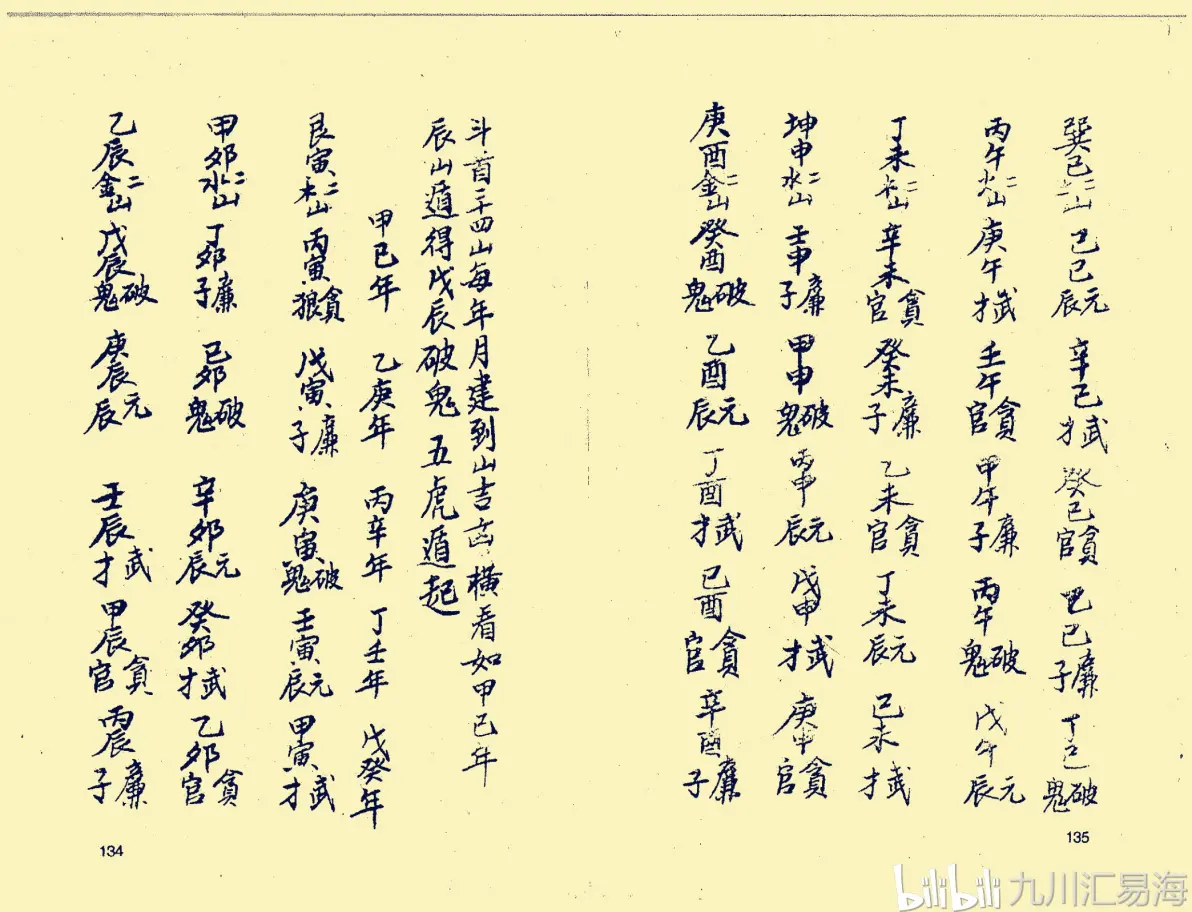 斗首二十四山每年月建到山吉凶横看如甲己年
辰山遁得戊辰破鬼 五虎遁起
甲己年 乙庚年 丙辛年 丁壬年 戊癸年
艮寅木二山 丙寅貪狼 戊寅廉子 庚寅破鬼 壬寅元辰 甲寅武才
甲卯水二山 丁卯廉子 己卯破鬼 辛卯元辰 癸卯武才 乙卯貪官
乙辰金二山 戊辰破鬼 庚辰元辰 壬辰武才 甲辰貪官 丙辰廉子
134
巽巳二山 己巳元辰 辛巳武才 癸巳貪官 乙巳廉子 丁巳破鬼
丙午火二山 庚午武才 壬午貪官 甲午廉子 丙午破鬼 戊午元辰
丁未木二山 辛未貪官 癸未廉子 乙未貪官 丁未元辰 己未武才
坤申水二山 壬申廉子 甲申破鬼 丙申元辰 戊申武才 庚申貪官
庚酉金二山 癸酉破鬼 乙酉元辰 丁酉武才 己酉貪官 辛酉廉子
135
bilibili 九川汇易海